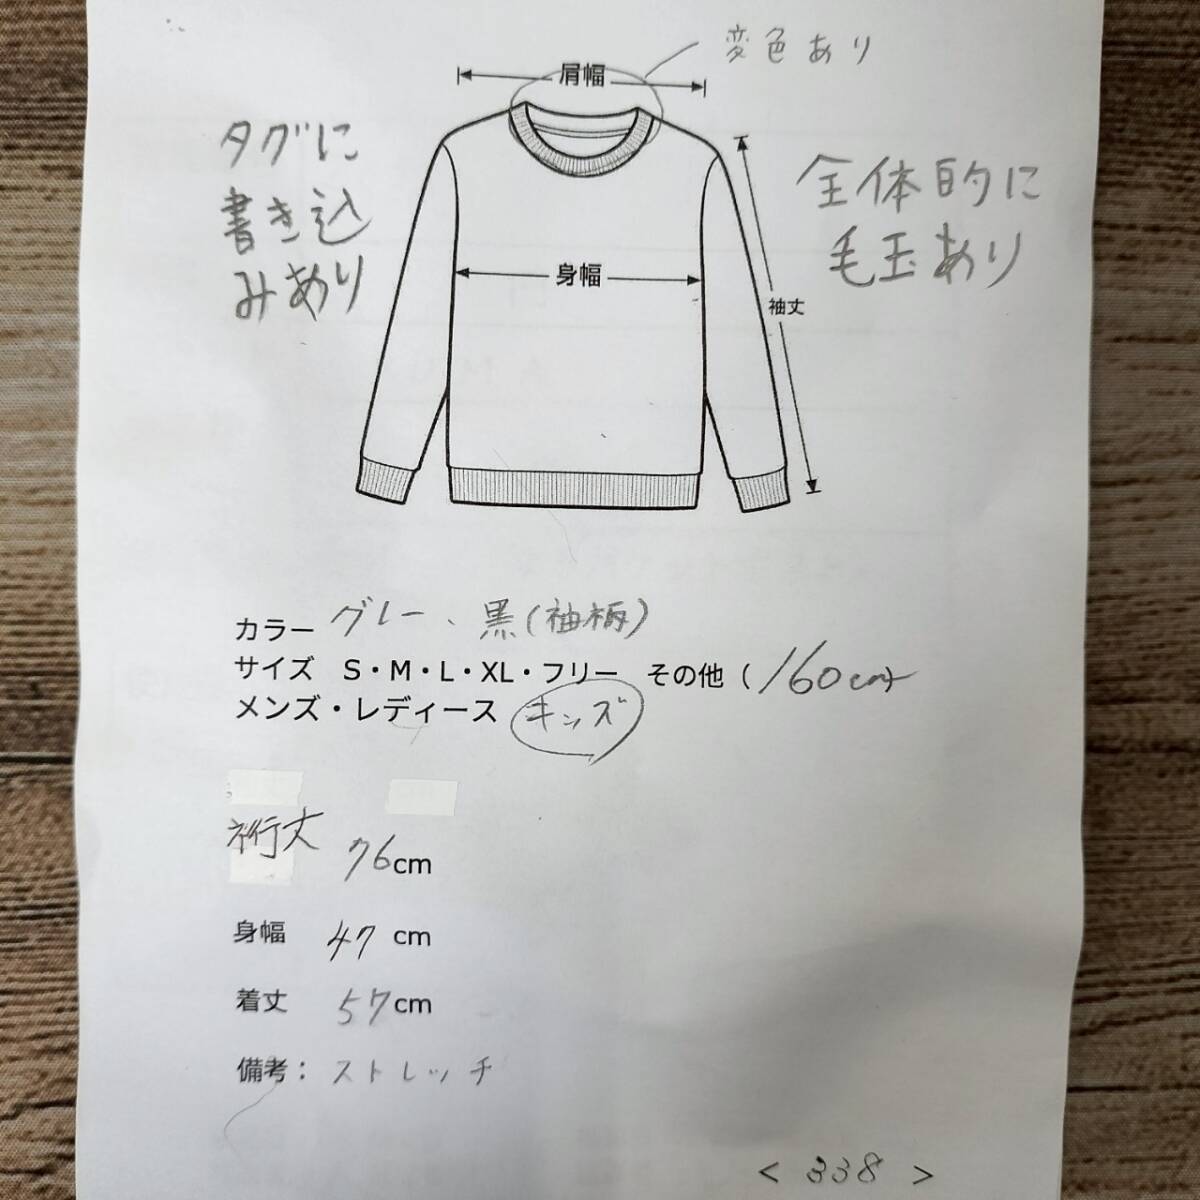 変色あり
肩幅
タグに
書き込
みあり
全体的に
毛玉あり
身幅
袖丈
カラー グレー、黒(袖柄)
サイズ S・M・L・XL・フリー その他 ( 160cm)
メンズ・レディース キッズ
裄丈 76cm
身幅 47 cm
着丈 57cm
備考: ストレッチ
< 338 >